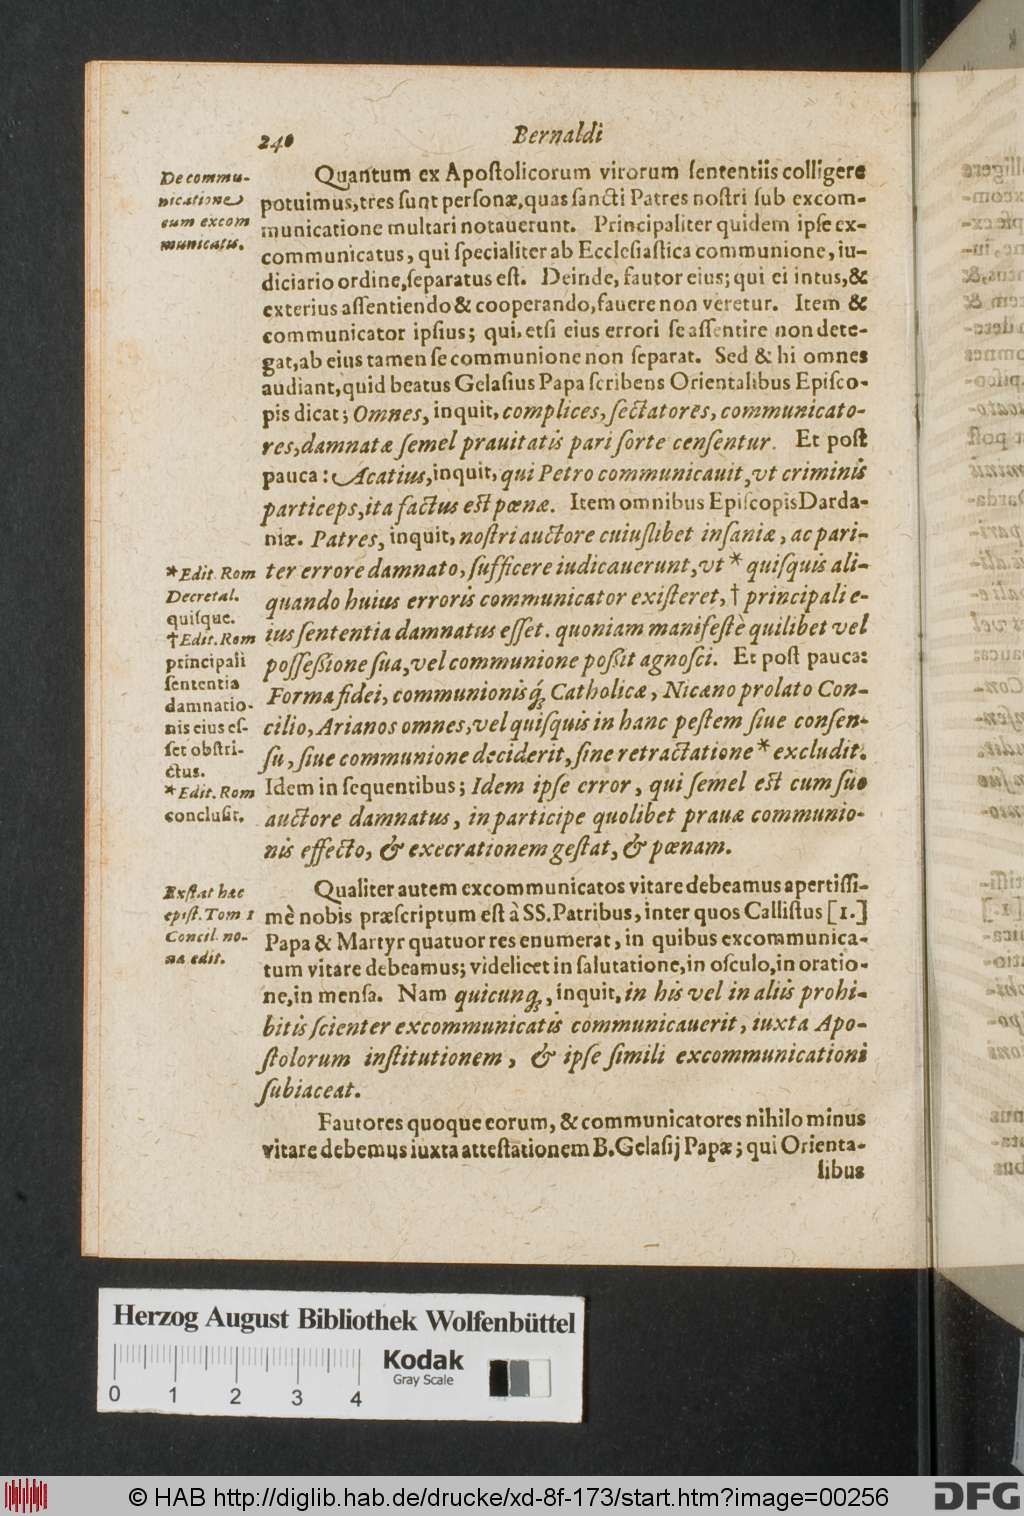 240
Bernaldi
De commu-
nicatione
cum excom
municatis.
Quantum ex Apoſtolicorum virorum ſententiis colligere
potuimus, tres ſunt perſonæ, quas ſancti Patres noſtri ſub excom-
municatione multari notauerunt. Principaliter quidem ipſe ex-
communicatus, qui ſpecialiter ab Eccleſiaſtica communione, iu-
diciario ordine, ſeparatus eſt. Deinde, fautor eius; qui ei intus, &
exterius aſſentiendo & cooperando, fauere non veretur. Item &
communicator ipſius; qui, etſi eius errori ſe aſſentire non dete-
gat, ab eius tamen ſe communione non ſeparat. Sed & hi omnes
audiant, quid beatus Gelaſius Papa ſcribens Orientalibus Epiſco-
pis dicat; Omnes, inquit, complices, ſectatores, communicato-
res, damnatæ ſemel prauitatis pari ſorte cenſentur. Et poſt
pauca: Acatius, inquit, qui Petro communicauit, vt criminis
particeps, ita factus eſt pœnæ. Item omnibus Epiſcopis Darda-
niæ. Patres, inquit, noſtri auctore cuiuſlibet inſaniæ, ac pari-
ter errore damnato, ſufficere iudicauerunt, vt * quiſquis ali-
quando huius erroris communicator exiſteret, † principali e-
ius ſententia damnatus eſſet. quoniam manifeſtè quilibet vel
poſſeſſione ſua, vel communione poſſit agnoſci. Et poſt pauca:
Forma fidei, communionisq́ꝫ Catholicæ, Nicæno prolato Con-
cilio, Arianos omnes, vel quiſquis in hanc peſtem ſiue conſen-
ſu, ſiue communione deciderit, ſine retractatione * excludit.
Idem in ſequentibus; Idem ipſe error, qui ſemel eſt cum ſuo
auctore damnatus, in participe quolibet prauæ communio-
nis effecto, & execrationem geſtat, & pœnam.
* Edit. Rom
Decretal.
quiſque.
† Edit. Rom
principali
ſententia
damnatio-
nis eius eſ-
ſet obſtri-
ctus.
* Edit. Rom
concluſit.
Exſtat hæc
epiſt. Tom 1
Concil. no-
na edit.
Qualiter autem excommunicatos vitare debeamus apertiſſi-
mè nobis præſcriptum eſt à SS. Patribus, inter quos Calliſtus [1.]
Papa & Martyr quatuor res enumerat, in quibus excommunica-
tum vitare debeamus; videlicet in ſalutatione, in oſculo, in oratio-
ne, in menſa. Nam quicunq́ꝫ, inquit, in his vel in aliis prohi-
bitis ſcienter excommunicatis communicauerit, iuxta Apo-
ſtolorum inſtitutionem, & ipſe ſimili excommunicationi
ſubiaceat.
Fautores quoque eorum, & communicatores nihilo minus
vitare debemus iuxta atteſtationem B. Gelaſij Papæ; qui Orienta-
libus
Herzog August Bibliothek Wolfenbüttel
0 1 2 3 4
Kodak
Gray Scale
© HAB http://diglib.hab.de/drucke/xd-8f-173/start.htm?image=00256
DFG